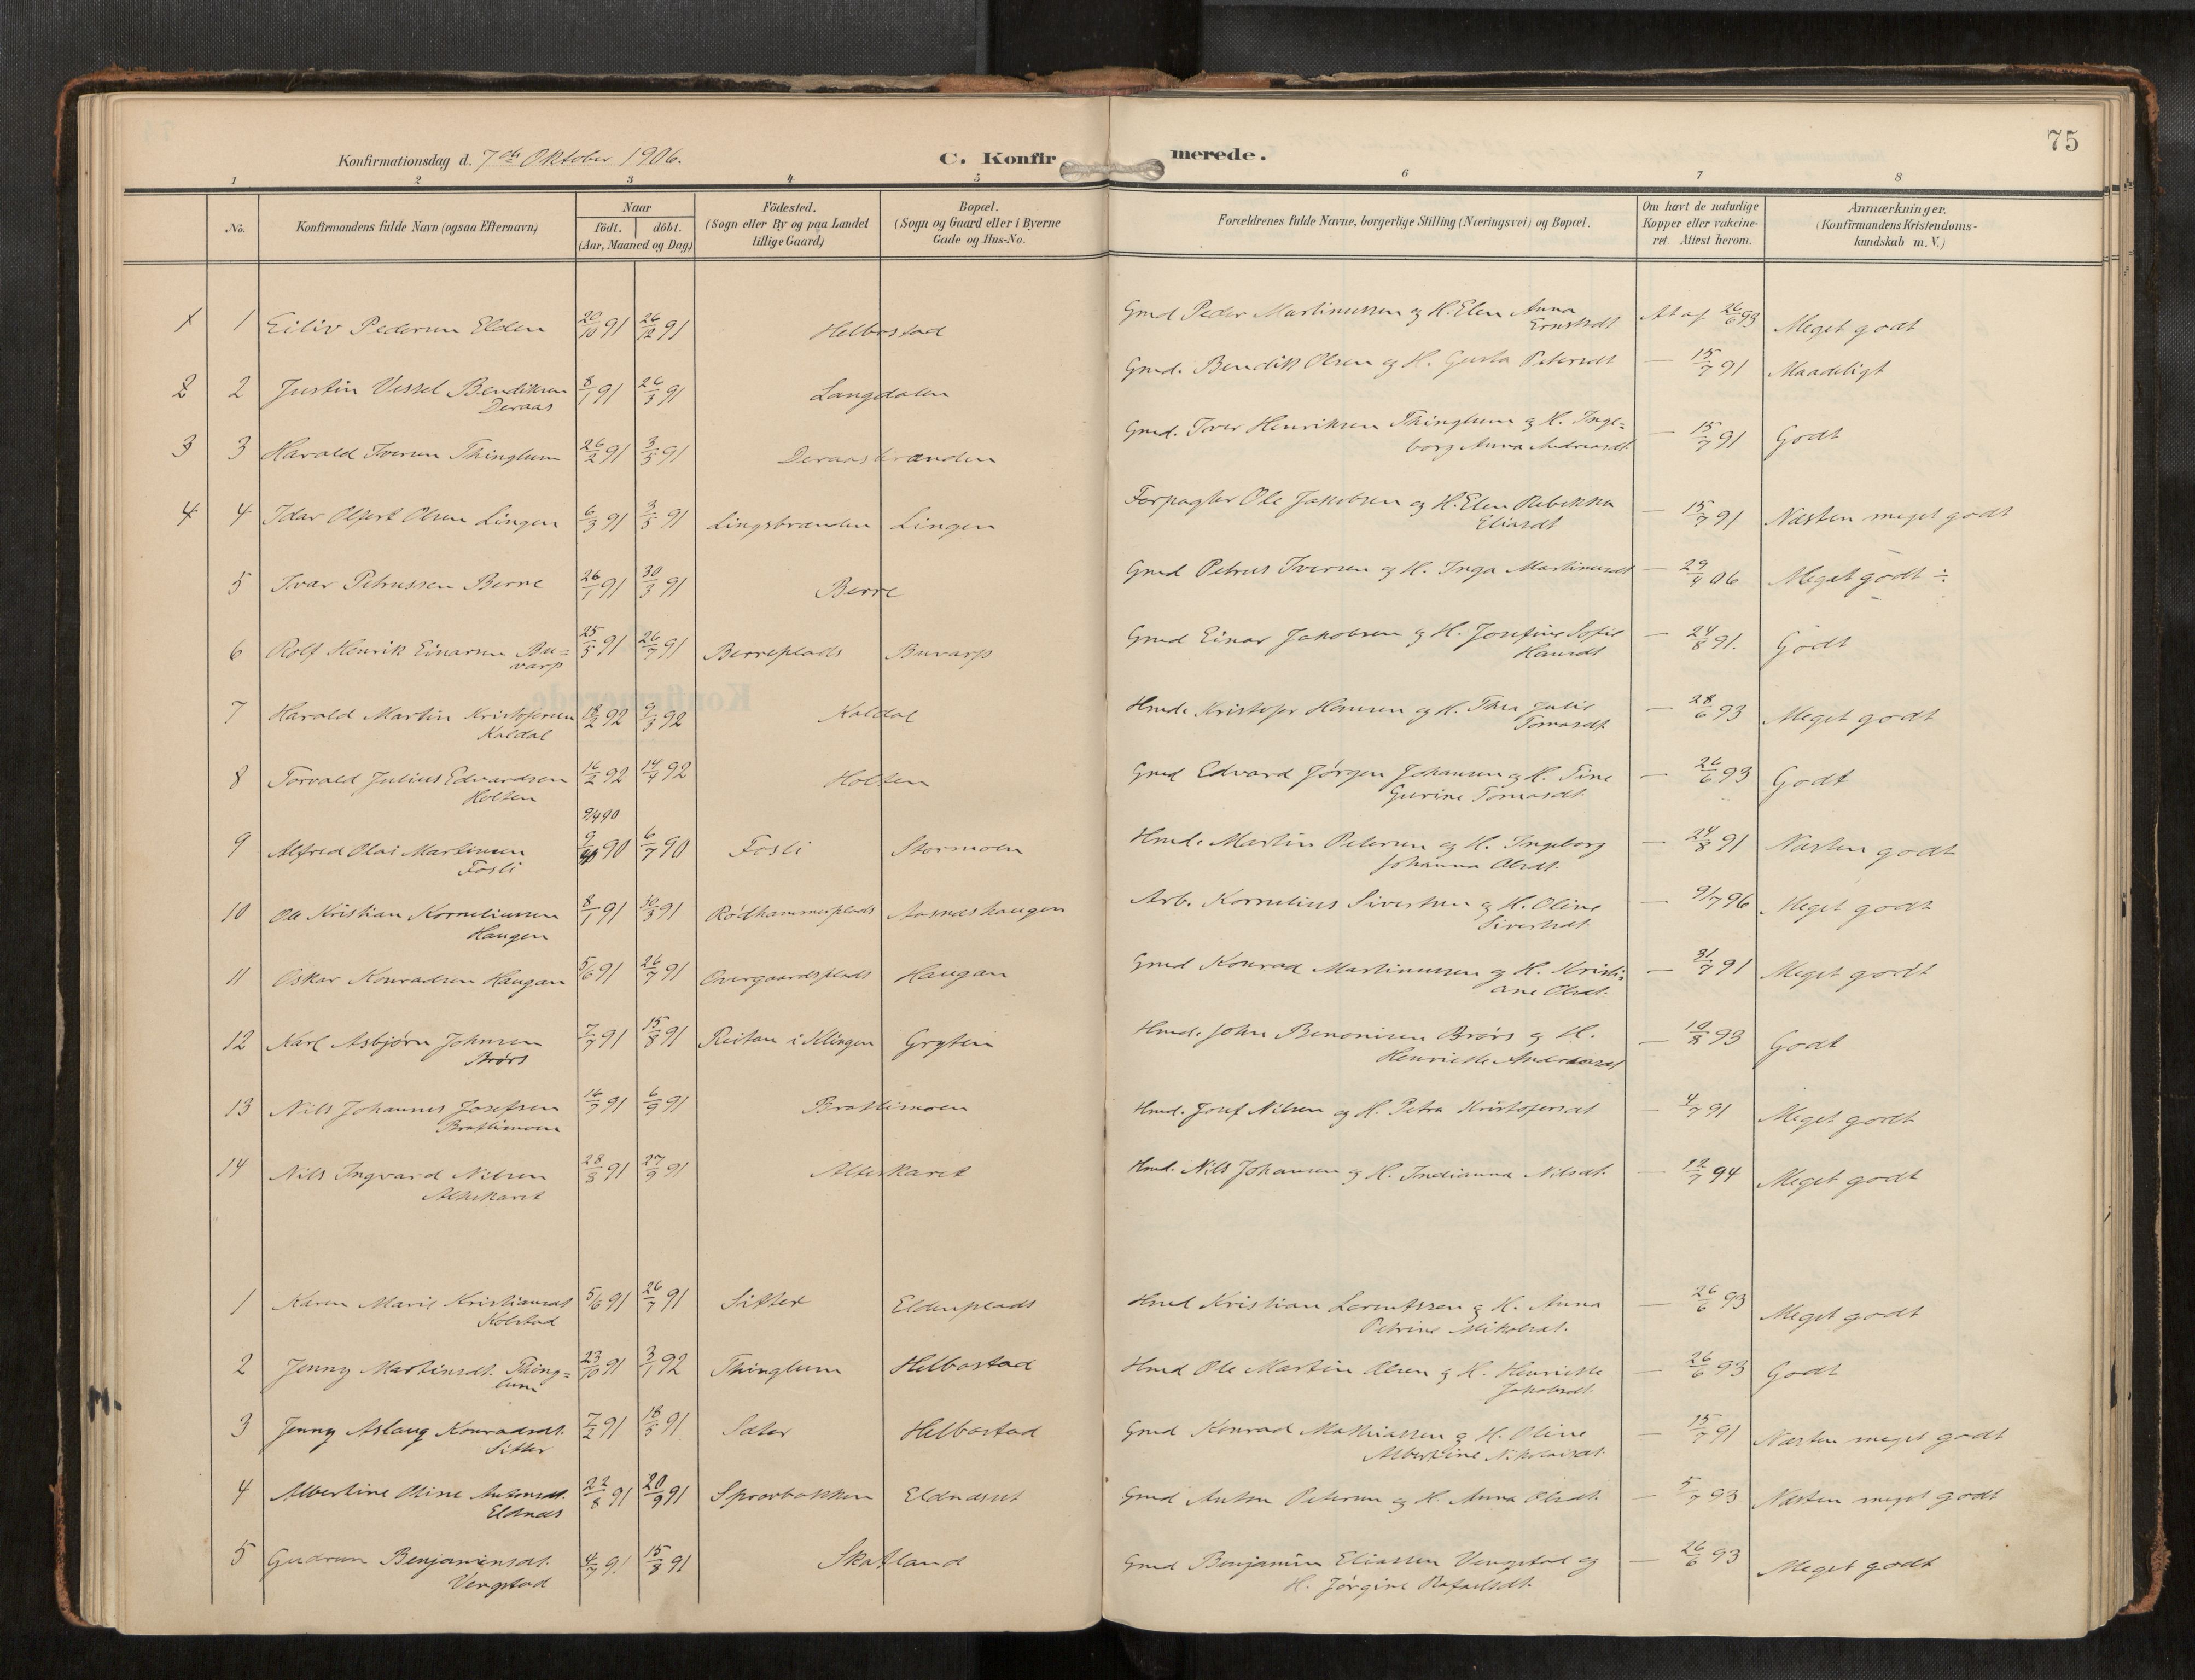 75
Konfirmationsdag d. 7de Oktober 1906.
C. Konfirmerede.
1 2 3 4 5 6 7 8
No.
Konfirmandens fulde Navn (ogsaa Efternavn)
Naar
födt. döbt.
(Aar, Maaned og Dag)
Födested.
(Sogn eller By og paa Landet
tillige Gaard)
Bopæl.
(Sogn og Gaard eller i Byerne
Gade og Hus-No.
Forældrenes fulde Navne, borgerlige Stilling (Næringsvei) og Bopæl.
Om havt de naturlige
Kopper eller vakcine-
ret Attest herom.
Anmærkninger.
(Konfirmandens Kristendoms-
kundskab m. V.)
1 1 Eiliv Pedersen Elden 20/10 91 26/12 91 Helbostad Gmd Peder Martinussen og H. Elen Anna At af 26/6 93 Meget godt
Ernstsdt
2 2 Justin Vessel Bendiksen 8/1 91 26/3 91 Langdalen Gmd. Bendik Olsen og H. Gusta Petersdt — 15/7 91 Maadeligt
Deraas
3 3 Harald Iversen Thinglum 26/2 91 3/5 91 Deraasbranden Gmd. Iver Henriksen Thinglum og H. Inge= — 15/7 91 Godt
borg Anna Andreasdt.
4 4 Idar Olfert Olsen Lingen 6/3 91 3/5 91 Lingsbranden Lingen Forpagter Ole Jakobsen og H. Elen Rebekka — 15/7 91 Næsten meget godt
Eliasdt
5 Ivar Petrussen Berre 26/1 91 30/3 91 Berre Gmd Petrus Iversen og H. Inga Martinusdt — 29/4 06 Meget godt ÷
6 Rolf Henrik Einarsen Bu= 25/5 91 26/7 91 Berreplads Buvarp Gmd Einar Jakobsen og H. Josefine Sofie — 24/8 91. Godt
varp Hansdt
7 Harald Martin Kristofersen 18/2 92 9/3 92 Kaldal Hmd. Kristofer Hansen og H. Thea Julie — 28/6 93 Meget godt
Kaldal Tomasdt.
8 Torvald Julius Edvardsen 16/2 92 14/4 92 Holten Gmd Edvard Jørgen Johansen og H. Tine — 26/6 93 Godt
Holten Gurine Tomasdt.
9/4 90
9 Alfred Olai Martinsen 90 6/7 90 Fosli Stormoen Hmd. Martin Petersen og H. Ingeborg — 24/8 91 Næsten godt
Fosli Johanna Olsdt.
10 Ole Kristian Korneliussen 8/1 91 30/3 91 Rödhammerplads Aasnæshaugen Arb. Kornelius Sivertsen og H. Oline — 9/7 96 Meget godt
Haugen Sivertsdt.
11 Oskar Konradsen Haugan 5/6 91 26/7 91 Overgaardsplads Haugan Gmd Konrad Martinussen og H. Kristi= — 31/7 91 Meget godt
ane Olsdt.
12 Karl Asbjørn Johnsen 7/7 91 15/8 91 Reitan i Klingen Grytin Hmd. John Benonisen Brørs og H. — 10/8 93 Godt
Brørs Henriette Andreasdt
13 Nils Johannes Josefsen 16/7 91 6/9 91 Bratlimoen Hmd. Josef Nilsen og H. Petra Kristofersdt — 4/7 91 Meget godt
Bratlimoen
14 Nils Ingvard Nilsen 28/8 91 27/9 91 Alteskaret Hmd. Nils Johansen og H. Indianna Nilsdt. — 12/7 94 Meget godt
Alteskaret
1 Karen Marie Kristiansdt 5/6 91 26/7 91 Sitter Eldenplads Hmd Kristian Lorentssen og H. Anna — 26/6 93 Meget godt
Kolstad Petrine Mikalsdt.
2 Jenny Martinsdt. Thing= 23/10 91 3/1 92 Thinglum Helbostad Hmd Ole Martin Olsen og H. Henriette — 26/6 93 Godt
lum Jakobsdt.
3 Jenny Aslaug Konradsdt. 7/2 91 18/5 91 Sæter Helbostad Gmd Konrad Mathiassen og H. Oline — 15/7 91 Næsten meget godt
Sitter Albertine Nikolaisdt.
4 Albertine Oline Antonsdt. 22/8 91 20/9 91 Sprovbakken Eldnæset Gmd Anton Petersen og H. Anna Olsdt. — 5/7 93 Næsten meget godt
Eldnæs
5 Gudrun Benjaminsdt. 4/7 91 15/8 91 Skatland Gmd Benjamin Eliassen Vengstad og — 26/6 93 Meget godt
Vengstad H. Jørgine Rafaelsdt.